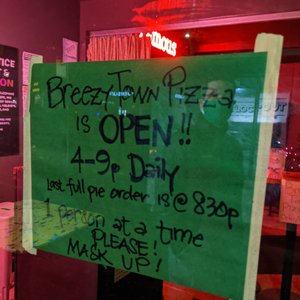 BreezyTown Pizza
is OPEN!!
4-9p Daily
Last full pie order is @ 830p
1 person at a time
PLEASE!
MASK UP!